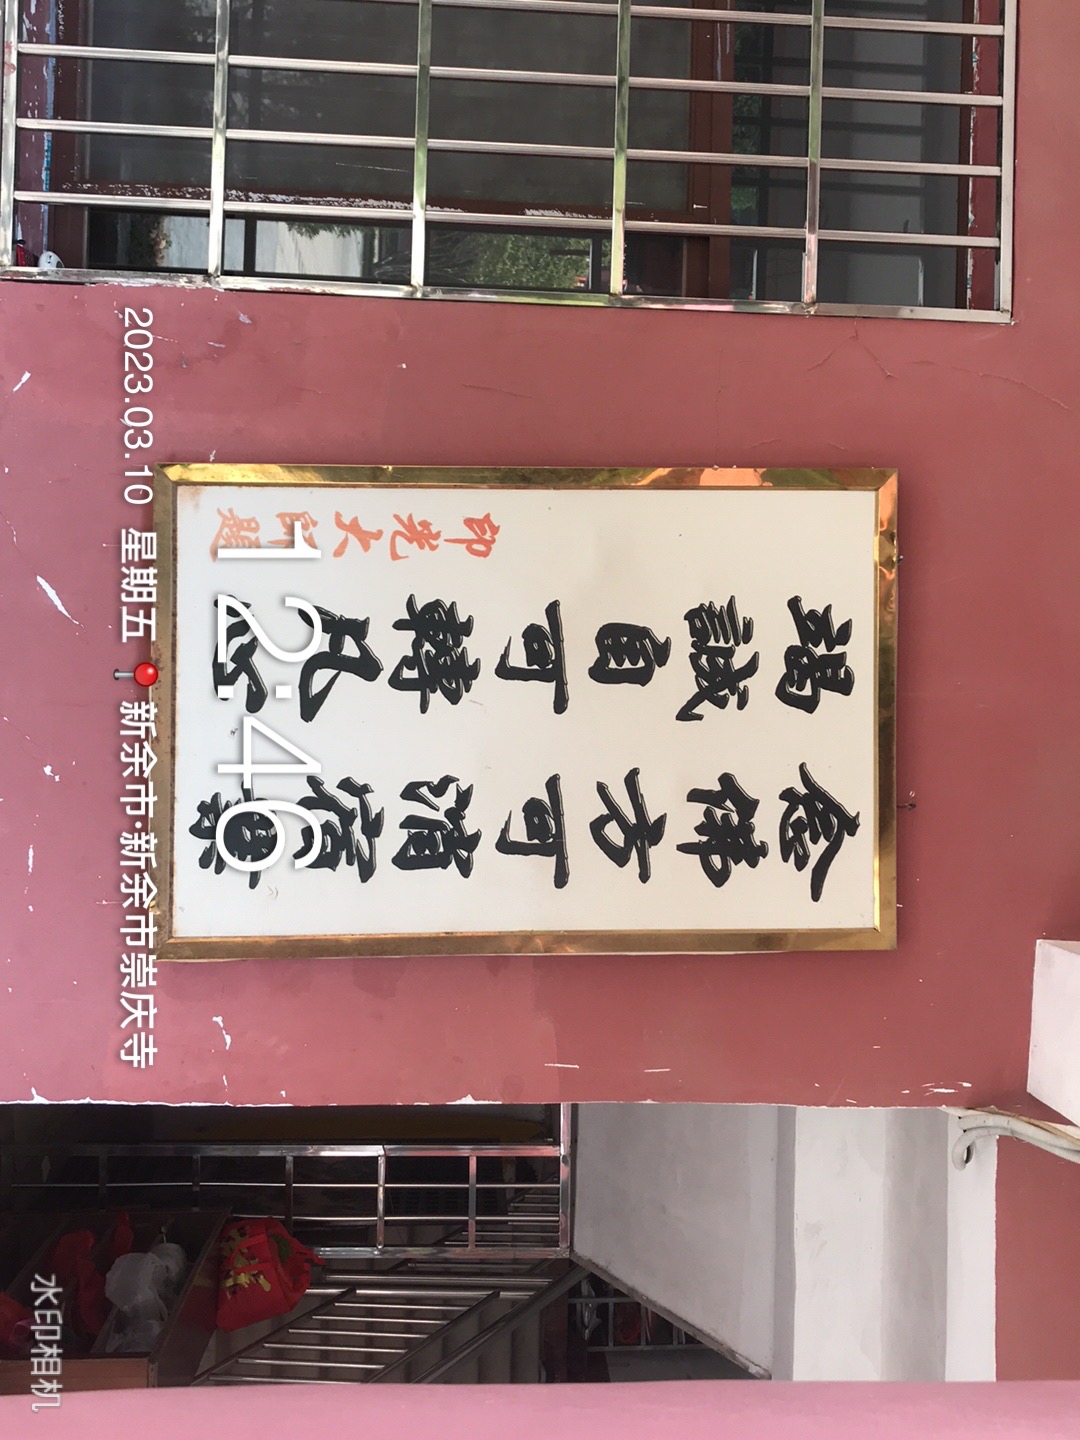 念佛方可消宿業
竭誠自可轉凡心
印光大師題
12:46
2023.03.10 星期五 新余市·新余市崇庆寺
水印相机